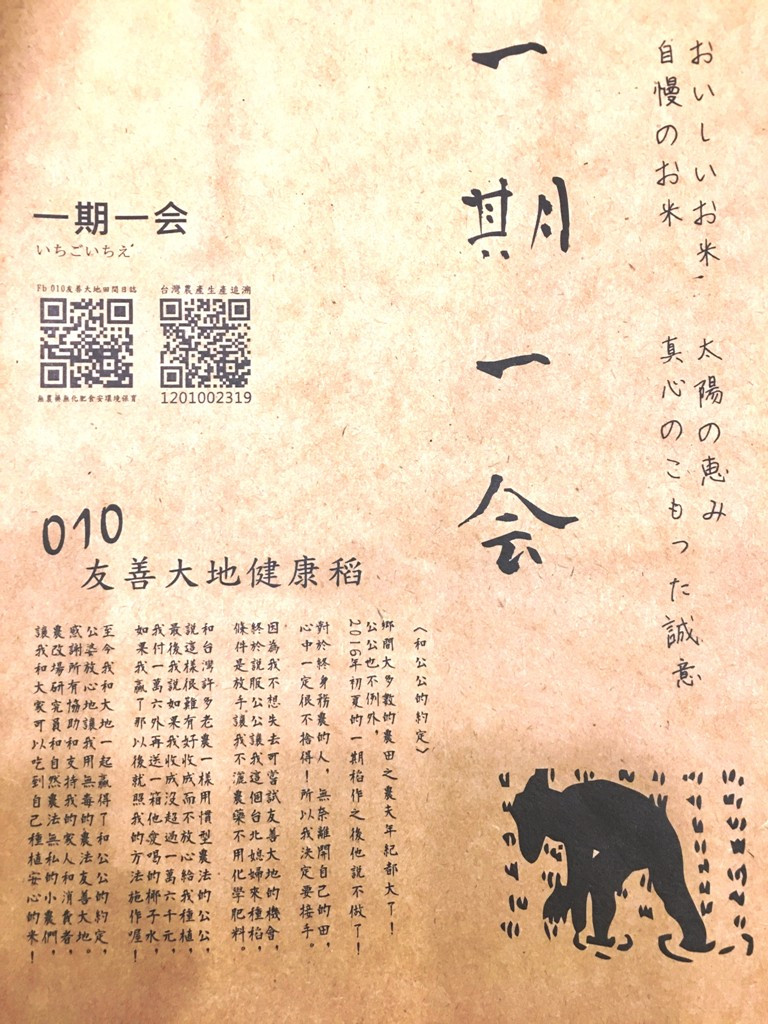 おいしいお米、
自慢のお米
太陽の恵み
真心のこもった誠意
一期一会
一期一会
いちごいちえ
Fb 010友善大地田間日誌
無農藥無化肥食安環境保育
台灣農產生產追溯
1201002319
010
友善大地健康稻
〈和公公的約定〉
鄉間大多數的農田之農夫年紀都大了！
公公也不例外，
2016年初夏的一期稻作之後他說不做了！
對於終身務農的人，無奈離開自己的田，
心中一定很不捨得！所以我決定要接手。
因為我不想失去可嘗試友善大地的機會，
終於說服公公讓我這個台北媳婦來種稻，
條件是放手讓我不灑農藥不用化學肥料。
和台灣許多老農一樣用慣型農法的公公，
說這樣很難有好收成而不放心給我種植，
最後我說如果我收成沒超過一萬六千元，
我付一萬六外再送一箱他愛喝的椰子水，
如果我贏了那以後就照我的方法施作喔！
至今我和大地一起贏得了和公公的約定，
公婆放心地讓我用無毒的農法友善大地。
感謝所有協助和支持我的家人和消費者，
農改場研究員和自然農法無私的小農們，
讓我和大家可以吃到自己種植安心的米！